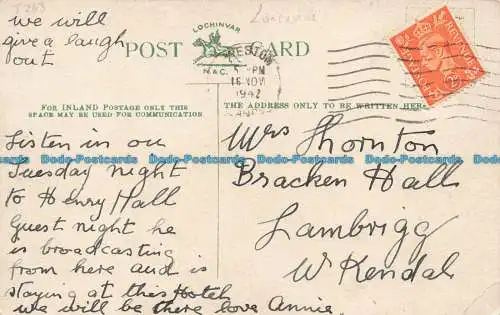 T 283
we will
give a laugh
out
Lancashire
LOCHINVAR
POST CARD
M&C.
PRESTON
PM
16 NOV
1942
FOR INLAND POSTAGE ONLY THIS
SPACE MAY BE USED FOR COMMUNICATION.
THE ADDRESS ONLY TO BE WRITTEN HERE
REVENUE
Listen in on
Tuesday night
to Henry Hall
Guest night he
is broadcasting
from here and is
staying at this Hotel
we will be there love Annie.
Mrs Thornton
Bracken Hall
Lambrigg
W Kendal
Dodo-Postcards Dodo-Postcards Dodo-Postcards Dodo-Postcards Dodo-Postcards